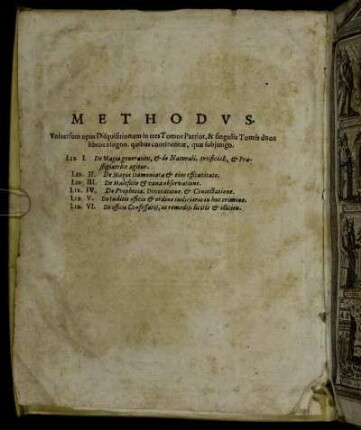 METHODVS.
Vniuersum opus Disquisitionum in tres Tomos Partior, & singulis Tomis duos
libros assigno. quibus continentur, quæ subjungo.
LIB. I. De Magia generatim, & de Naturali, Artificiali, & Præ-
stigiatrice agitur.
LIB. II. De Magia Dæmoniaca & eius efficacitate.
LIB. III. De Maleficio & vana obseruatione.
LIB. IV. De Prophetia, Diuinatione & Coniectatione.
LIB. V. De Iudicis officio & ordine iudiciario in hoc crimine.
LIB. VI. De officio Confessarij, ac remedijs licitis & illicitis.